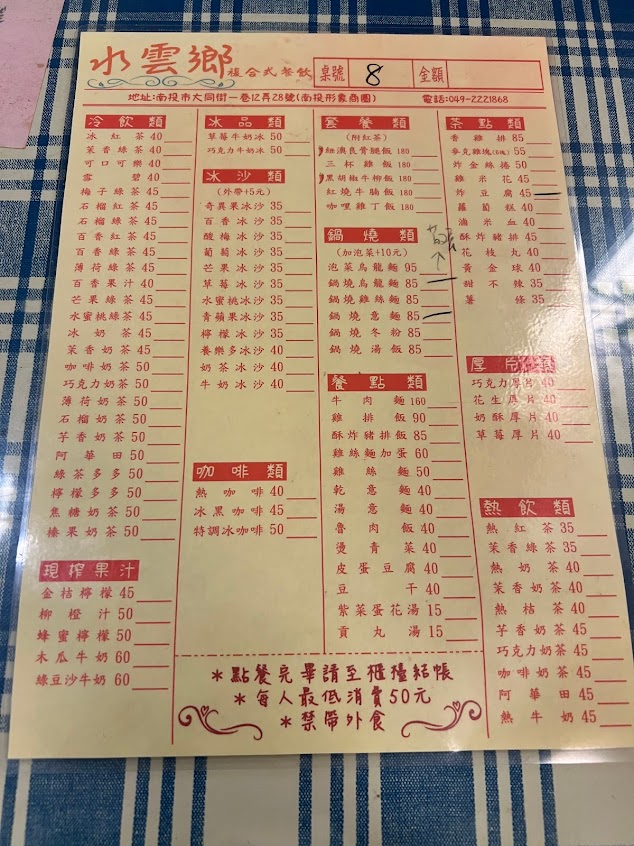 水雲鄉 複合式餐飲 桌號 8 金額
地址:南投市大同街一巷12弄28號(南投形象商圈) 電話:049-2221868
冷飲類
冰紅茶 40
茉香綠茶 40
可口可樂 40
雪碧 40
梅子綠茶 45
石榴紅茶 45
石榴綠茶 45
百香紅茶 45
百香綠茶 45
薄荷綠茶 45
百香果汁 40
芒果綠茶 45
水蜜桃綠茶 45
冰奶茶 45
茉香奶茶 45
咖啡奶茶 50
巧克力奶茶 50
薄荷奶茶 50
石榴奶茶 50
芋香奶茶 50
阿華田 50
綠茶多多 50
檸檬多多 50
焦糖奶茶 50
榛果奶茶 50
現榨果汁
金桔檸檬 45
柳橙汁 50
蜂蜜檸檬 50
木瓜牛奶 60
綠豆沙牛奶 60
冰品類
草莓牛奶冰 50
巧克力牛奶冰 50
冰沙類
(外帶+5元)
奇異果冰沙 35
百香冰沙 35
酸梅冰沙 35
葡萄冰沙 35
芒果冰沙 35
草莓冰沙 35
水蜜桃冰沙 35
青蘋果冰沙 35
檸檬冰沙 35
養樂多冰沙 40
奶茶冰沙 40
牛奶冰沙 40
咖啡類
熱咖啡 40
冰黑咖啡 45
特調冰咖啡 50
套餐類
(附紅茶)
紐澳良骨腿飯 180
三杯雞飯 180
黑胡椒牛柳飯 180
紅燒牛腩飯 180
咖哩雞丁飯 180
鍋燒類
(加泡菜+10元)
泡菜烏龍麵 95
鍋燒烏龍麵 85
鍋燒雞絲麵 85
鍋燒意麵 85
鍋燒冬粉 85
鍋燒湯飯 85
餐點類
牛肉麵 160
雞排飯 90
酥炸豬排飯 85
雞絲麵加蛋 60
雞絲麵 50
乾意麵 40
湯意麵 40
魯肉飯 40
燙青菜 40
皮蛋豆腐 40
豆干 40
紫菜蛋花湯 15
貢丸湯 15
茶點類
香雞排 85
麥克雞塊(6塊) 55
炸金絲捲 50
雞米花 45
炸豆腐 45
蘿蔔糕 40
滷米血 40
酥炸豬排 45
花枝丸 40
黃金球 40
甜不辣 35
薯條 35
厚片類
巧克力厚片 40
花生厚片 40
奶酥厚片 40
草莓厚片 40
熱飲類
熱紅茶 35
茉香綠茶 35
熱奶茶 40
茉香奶茶 40
熱桔茶 40
芋香奶茶 45
巧克力奶茶 45
咖啡奶茶 45
阿華田 45
熱牛奶 45
*點餐完畢請至櫃檯結帳
*每人最低消費50元
*禁帶外食